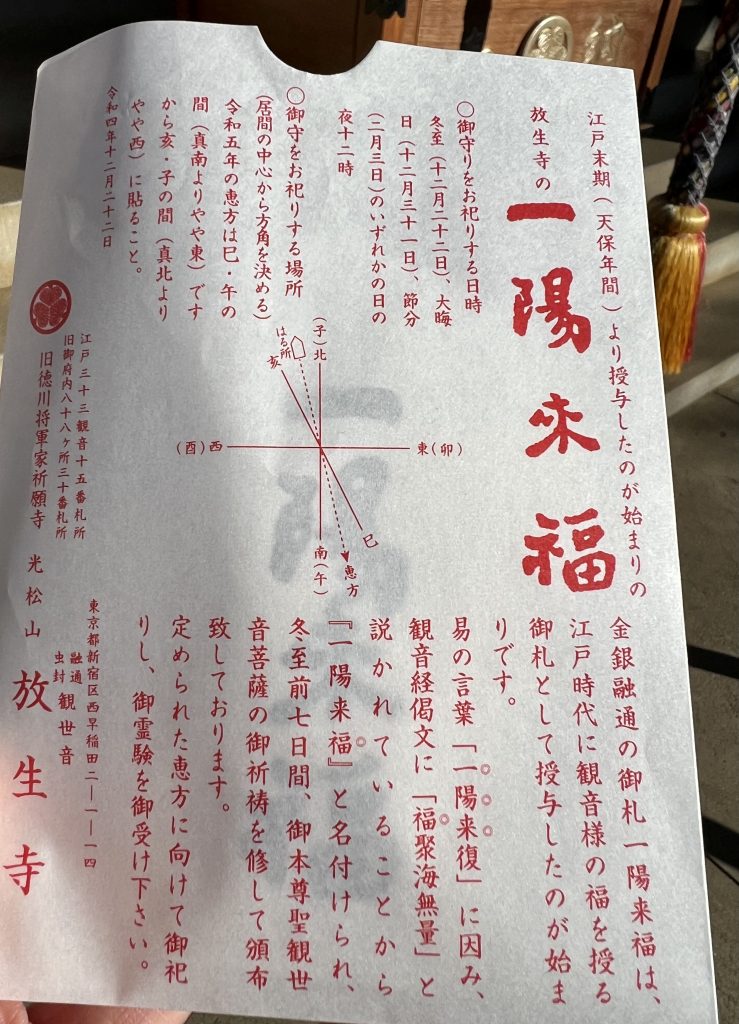 江戸末期(天保年間)より授与したのが始まりの
放生寺の
一陽来福
○御守りをお祀りする日時
冬至(十二月二十二日)、大晦
日(十二月三十一日)、節分
(二月三日)のいずれかの日の
夜十二時
○御守をお祀りする場所
(居間の中心から方角を決める)
令和五年の恵方は巳・午の
間(真南よりやや東)です
から亥・子の間(真北より
やや西)に貼ること。
令和四年十二月二十二日
(子)北
はる所
亥
(酉)西
東(卯)
巳
南(午)
恵方
金銀融通の御札一陽来福は、
江戸時代に観音様の福を授る
御札として授与したのが始ま
りです。
易の言葉「一陽来復」に因み、
観音経偈文に「福聚海無量」と
説かれていることから
『一陽来福』と名付けられ、
冬至前七日間、御本尊聖観世
音菩薩の御祈祷を修して頒布
致しております。
定められた恵方に向けて御祀
りし、御霊験を御受け下さい。
江戸三十三観音十五番札所
旧御府内八十八ヶ所三十番札所
旧徳川将軍家祈願寺 光松山 放生寺
東京都新宿区西早稲田二―一―一四
融通
虫封
観世音
一陽来福